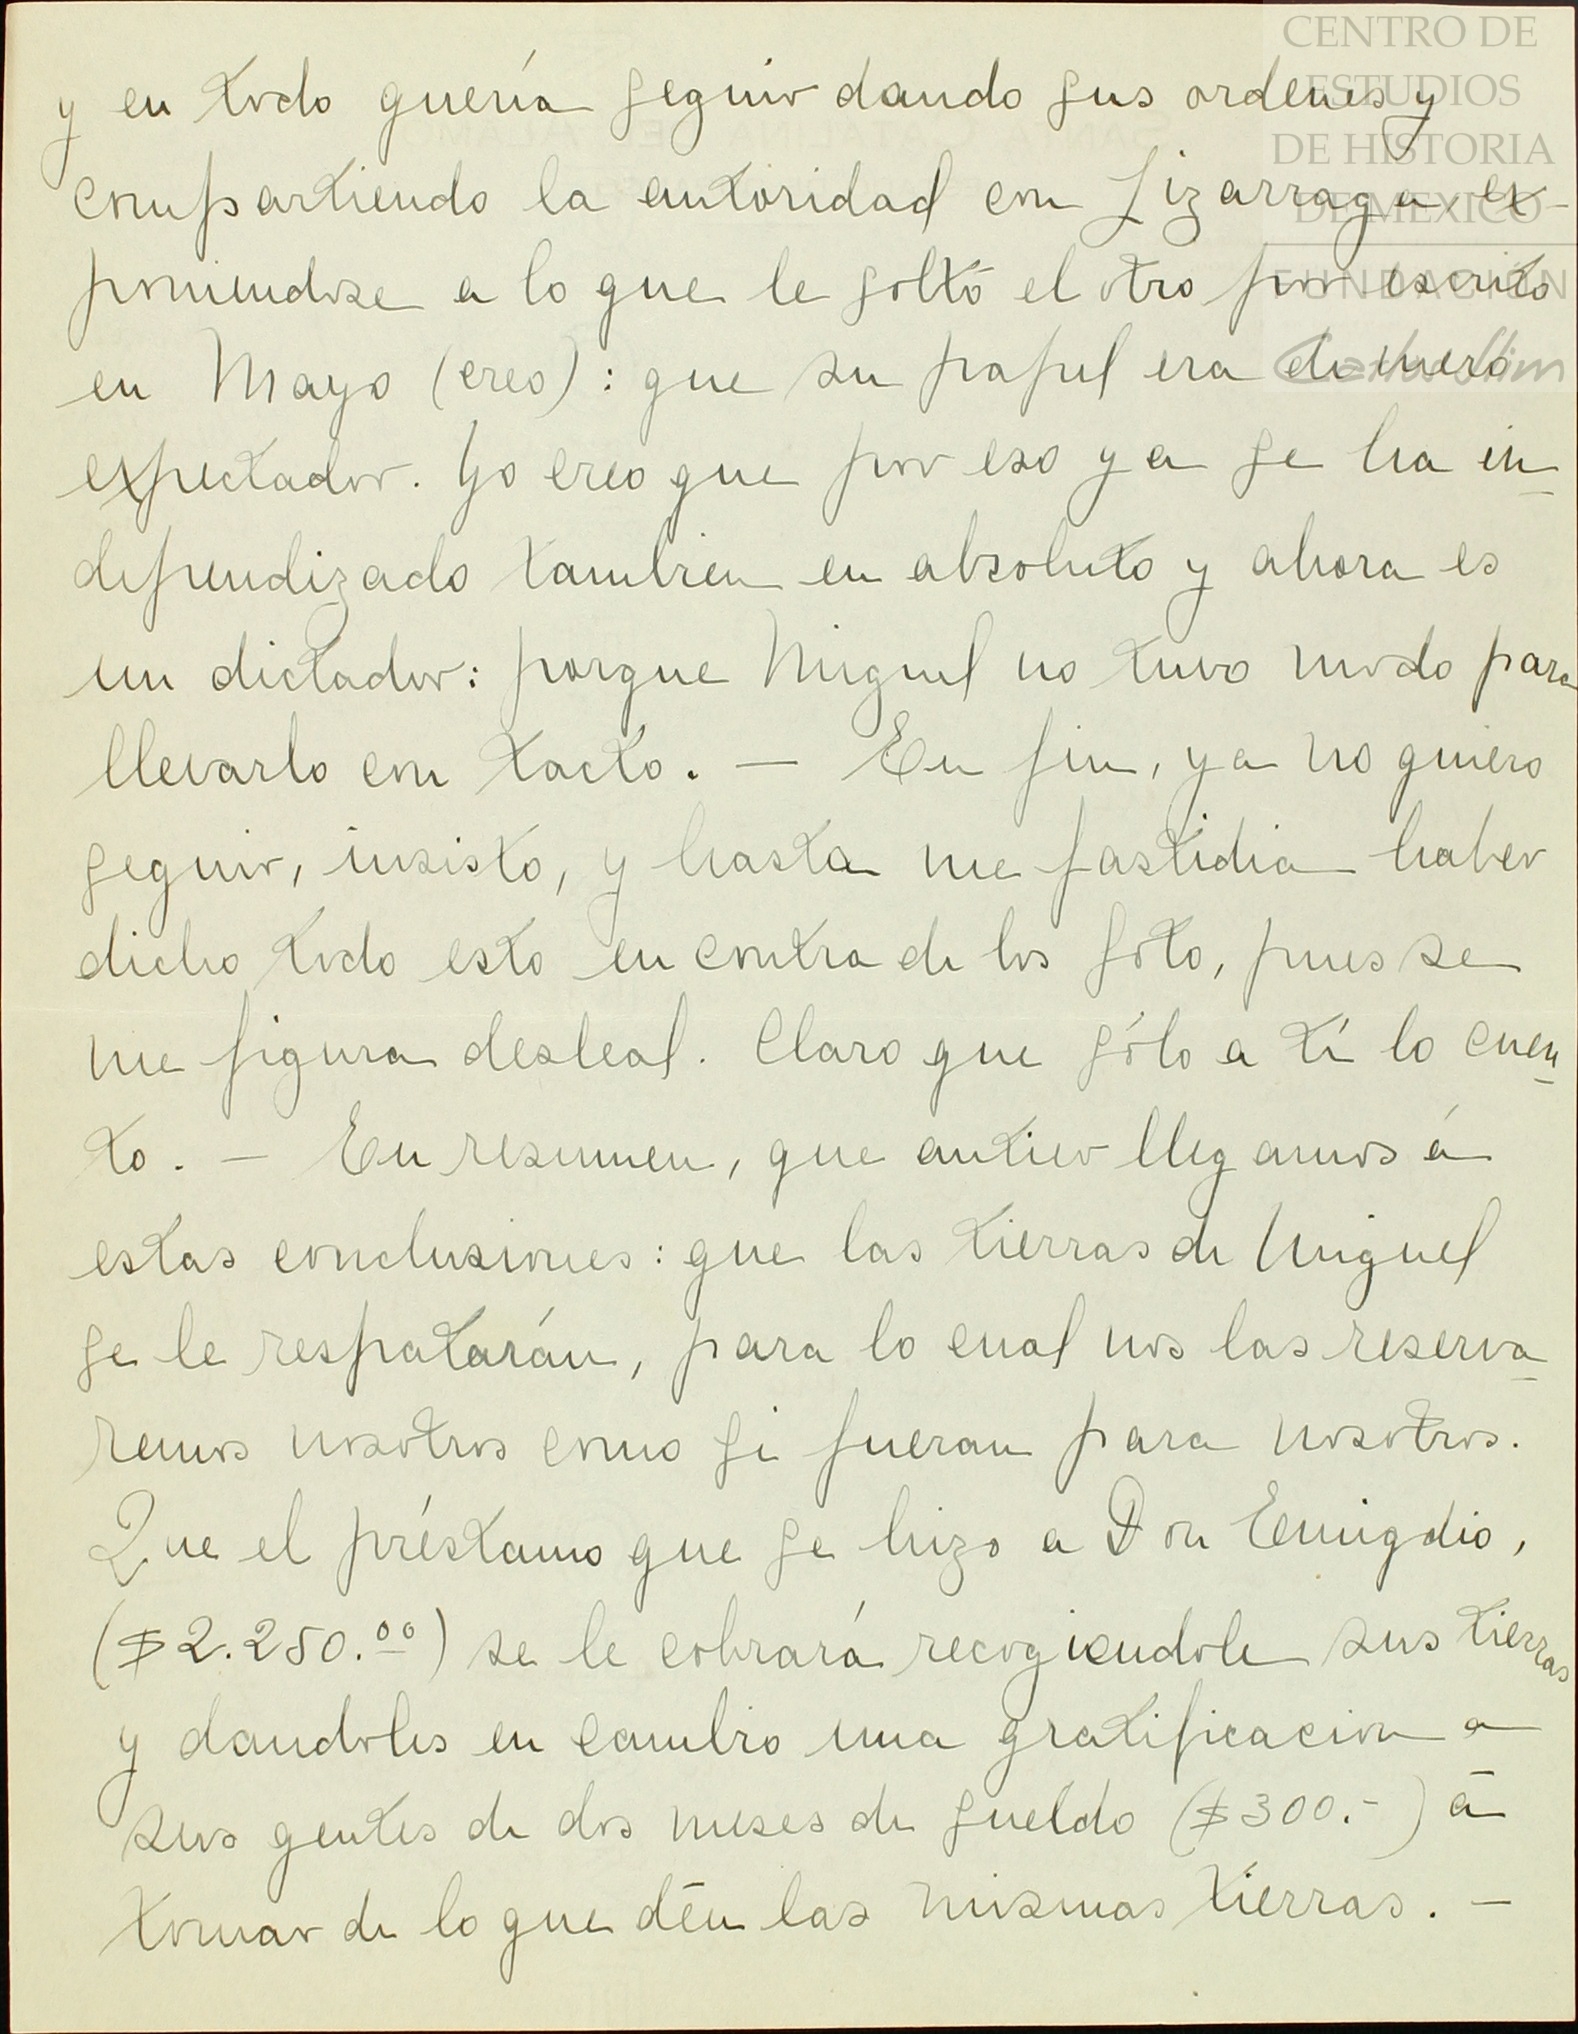 CENTRO DE
ESTUDIOS
DE HISTORIA
DE MEXICO
FUNDACIÓN
Carlos Slim
y en todo quería seguir dando sus ordenes y
compartiendo la autoridad con Lizarraga ex-
poniendose a lo que le soltó el otro por escrito
en Mayo (creo): que su papel era de mero
expectador. Yo creo que por eso ya se ha in-
dependizado tambien en absoluto y ahora es
un dictador: porque Miguel no tuvo modo para
llevarlo con tacto. — En fin, ya no quiero
seguir, insisto, y hasta me fastidia haber
dicho todo esto en contra de los Soto, pues se
me figura desleal. Claro que sólo a tí lo cuen-
to. — En resumen, que antier llegamos á
estas conclusiones: que las tierras de Miguel
se le respatarán, para lo cual nos las reserva-
remos nosotros como si fueran para nosotros.
Que el préstamo que se hizo a Don Emigdio,
($2.250.00) se le cobrará recogiendole sus tierras
y dandoles en cambio una gratificacion a
sus gentes de dos meses de sueldo ($300.-) á
tomar de lo que dén las mismas tierras. —